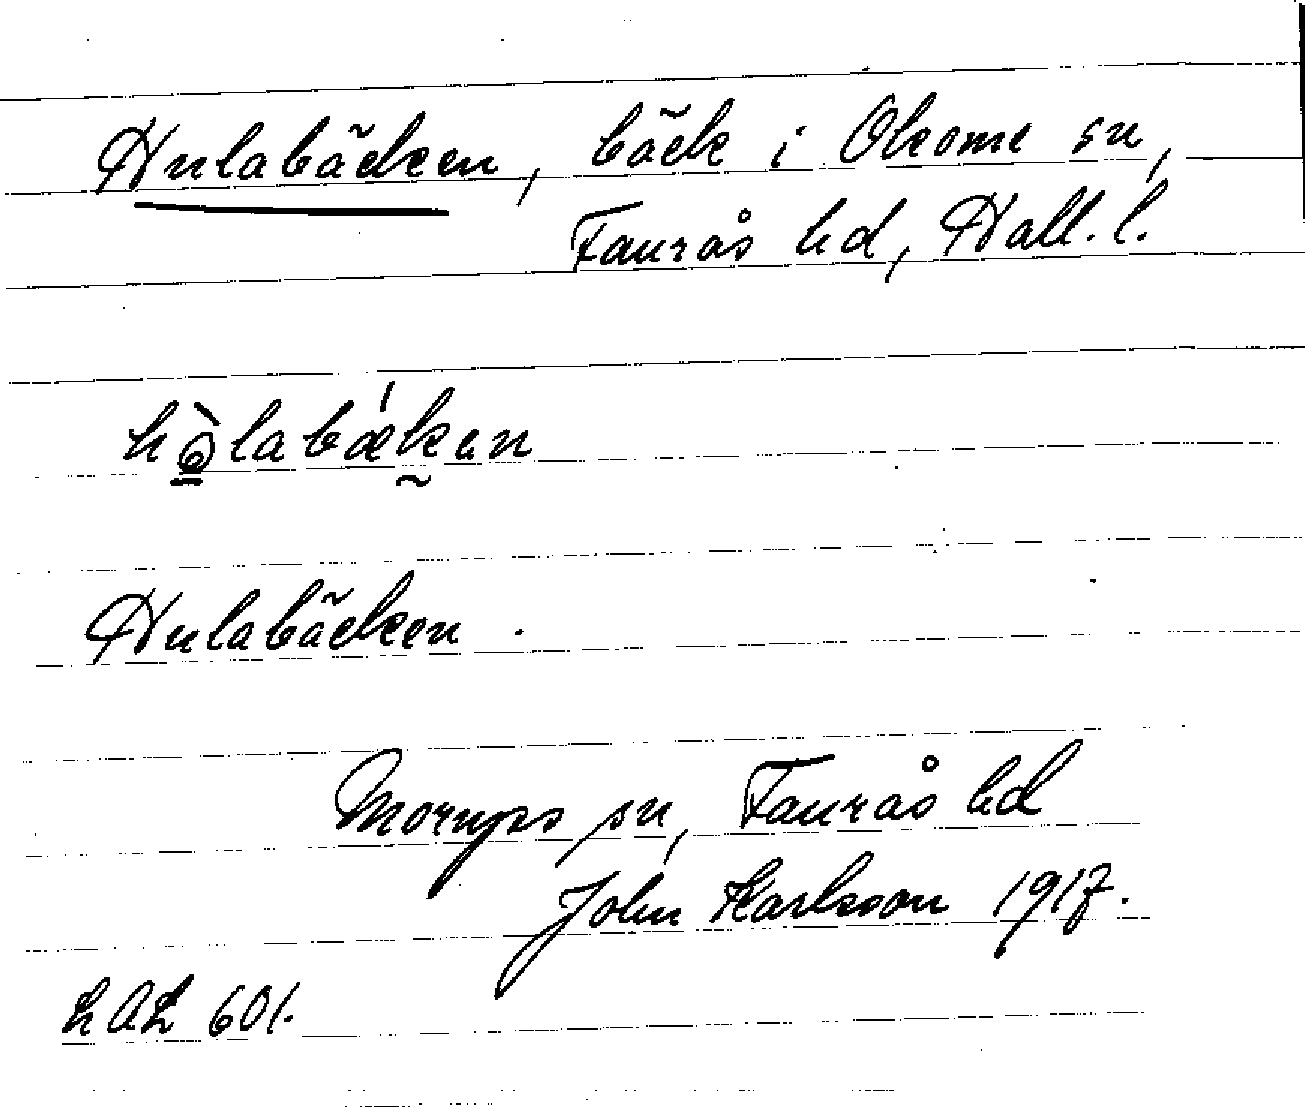 Hulabäcken, bäck i Okome sn,
Faurås hd, Hall. l.
hòlabǽken
Hulabäcken.
Morups sn, Faurås hd
John Karlsson 1917.
LAL 601.